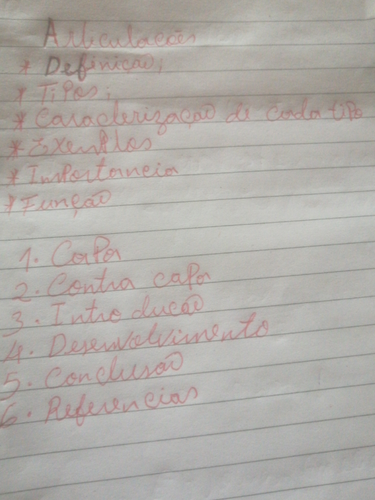 Articulações
* Definição;
* Tipos;
* Caracterização de cada tipo
* Exemplos
* Importancia
* Função
1. Capa
2. Contra capa
3. Introdução
4. Desenvolvimento
5. Conclusão
6. Referencias